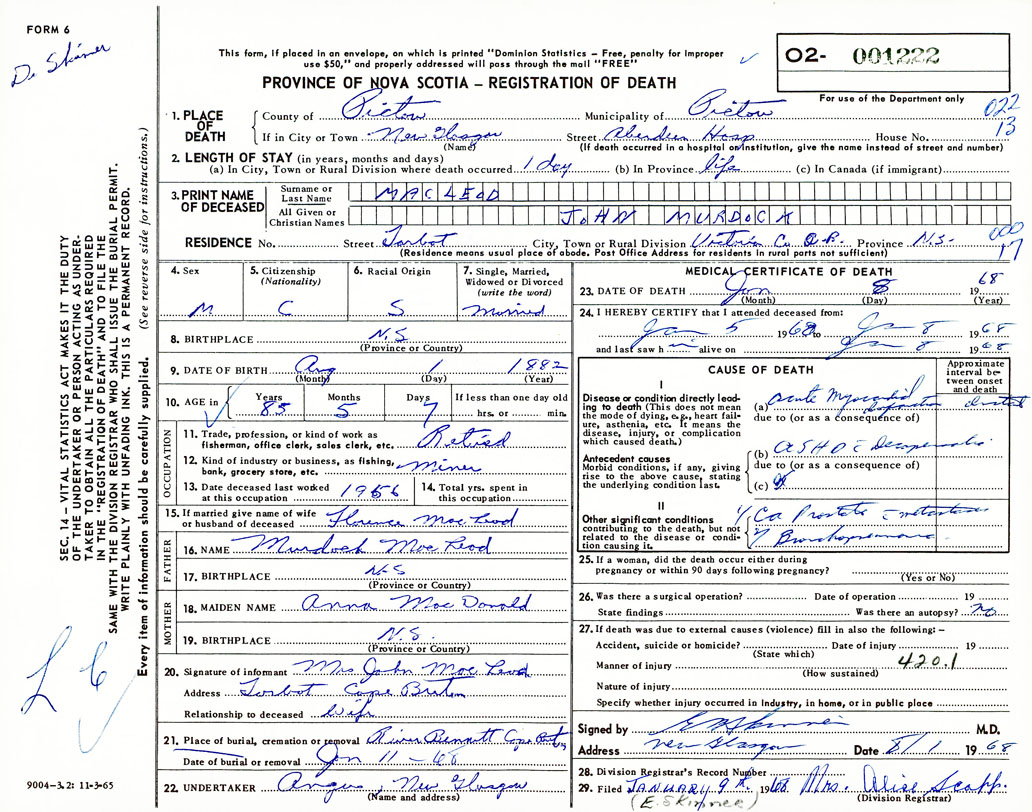 FORM 6
Dr Skinner
This form, if placed in an envelope, on which is printed "Dominion Statistics – Free, penalty for improper
use $50," and properly addressed will pass through the mail "FREE"
O2- 001222
For use of the Department only
PROVINCE OF NOVA SCOTIA – REGISTRATION OF DEATH
022
13
1. PLACE OF DEATH
County of Pictou Municipality of Pictou
If in City or Town New Glasgow Street Aberdeen Hosp House No.
(Name) (If death occurred in a hospital or institution, give the name instead of street and number)
2. LENGTH OF STAY (in years, months and days)
(a) In City, Town or Rural Division where death occurred 1 day (b) In Province life (c) In Canada (if immigrant)
3. PRINT NAME OF DECEASED
Surname or Last Name MACLEOD
All Given or Christian Names JOHN MURDOCK
RESIDENCE No. Street Tarbot City, Town or Rural Division Victoria Co. Province N.S.
(Residence means usual place of abode. Post Office Address for residents in rural parts not sufficient)
000
17
4. Sex M
5. Citizenship (Nationality) C
6. Racial Origin S
7. Single, Married, Widowed or Divorced (write the word) Married
8. BIRTHPLACE N.S
(Province or Country)
9. DATE OF BIRTH Aug 1 1882
(Month) (Day) (Year)
10. AGE in Years 85 Months 5 Days 7 If less than one day old hrs. or min.
OCCUPATION
11. Trade, profession, or kind of work as fisherman, office clerk, sales clerk, etc. Retired
12. Kind of industry or business, as fishing, bank, grocery store, etc. Miner
13. Date deceased last worked at this occupation 1956
14. Total yrs. spent in this occupation
15. If married give name of wife or husband of deceased Florence MacLeod
FATHER
16. NAME Murdoch MacLeod
17. BIRTHPLACE N-S
(Province or Country)
MOTHER
18. MAIDEN NAME Anna MacDonald
19. BIRTHPLACE N.S.
(Province or Country)
20. Signature of informant Mrs John MacLeod
Address Tarbot Cape Breton
Relationship to deceased Wife
21. Place of burial, cremation or removal River Bennett Cape Breton
Date of burial or removal Jan 11 - 68
22. UNDERTAKER Angus, New Glasgow
(Name and address)
MEDICAL CERTIFICATE OF DEATH
23. DATE OF DEATH Jan 8 1968
(Month) (Day) (Year)
24. I HEREBY CERTIFY that I attended deceased from:
Jan 5 1968 to Jan 8 1968
and last saw him alive on Jan 8 1968
CAUSE OF DEATH
Approximate interval between onset and death
I
Disease or condition directly leading to death (This does not mean the mode of dying, e.g., heart failure, asthenia, etc. It means the disease, injury, or complication which caused death.)
(a) Acute Myocardial Infarction
due to (or as a consequence of)
Antecedent causes
Morbid conditions, if any, giving rise to the above cause, stating the underlying condition last.
(b) ASHD c
due to (or as a consequence of)
(c)
II
Other significant conditions contributing to the death, but not related to the disease or condition causing it.
1/ Ca Prostate c metastases
2/ Bronchopneumonia
25. If a woman, did the death occur either during pregnancy or within 90 days following pregnancy?
(Yes or No)
26. Was there a surgical operation? Date of operation 19
State findings Was there an autopsy? No
27. If death was due to external causes (violence) fill in also the following: –
Accident, suicide or homicide? Date of injury 19
(State which)
Manner of injury 420.1
(How sustained)
Nature of injury
Specify whether injury occurred in Industry, in home, or in public place
Signed by E M Skinner M.D.
Address New Glasgow Date 8/1 1968
28. Division Registrar's Record Number
29. Filed JANUARY 9th 1968 Mrs. Alise Scapp.
(E. Skinner) (Division Registrar)
SEC. 14 – VITAL STATISTICS ACT MAKES IT THE DUTY
OF THE UNDERTAKER OR PERSON ACTING AS UNDER-
TAKER TO OBTAIN ALL THE PARTICULARS REQUIRED
IN THE "REGISTRATION OF DEATH" AND TO FILE THE
SAME WITH THE DIVISION REGISTRAR WHO SHALL ISSUE THE BURIAL PERMIT.
WRITE PLAINLY WITH UNFADING INK. THIS IS A PERMANENT RECORD.
Every item of information should be carefully supplied. (See reverse side for instructions.)
9004-3.2: 11-3-65